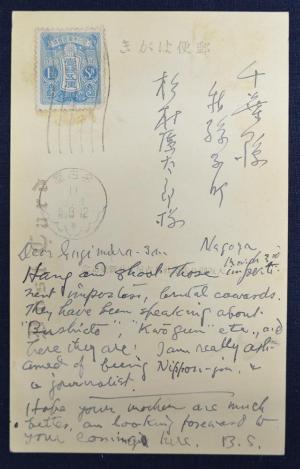 郵便はがき
1½ Sn
千葉縣
我孫子町
杉村廣太郎様
Nagoya
March 3rd
Dear Sugimura-San
Hang and shoot those imperti-
nent impostors, brutal cowards.
They have been speaking about
"Bushido", "Kwōgun" etc., and
here they are! I am really ash-
amed of being Nippon-jin, &
a journalist.
Hope your mother are much
better, am looking forward to
your coming here. B.S.